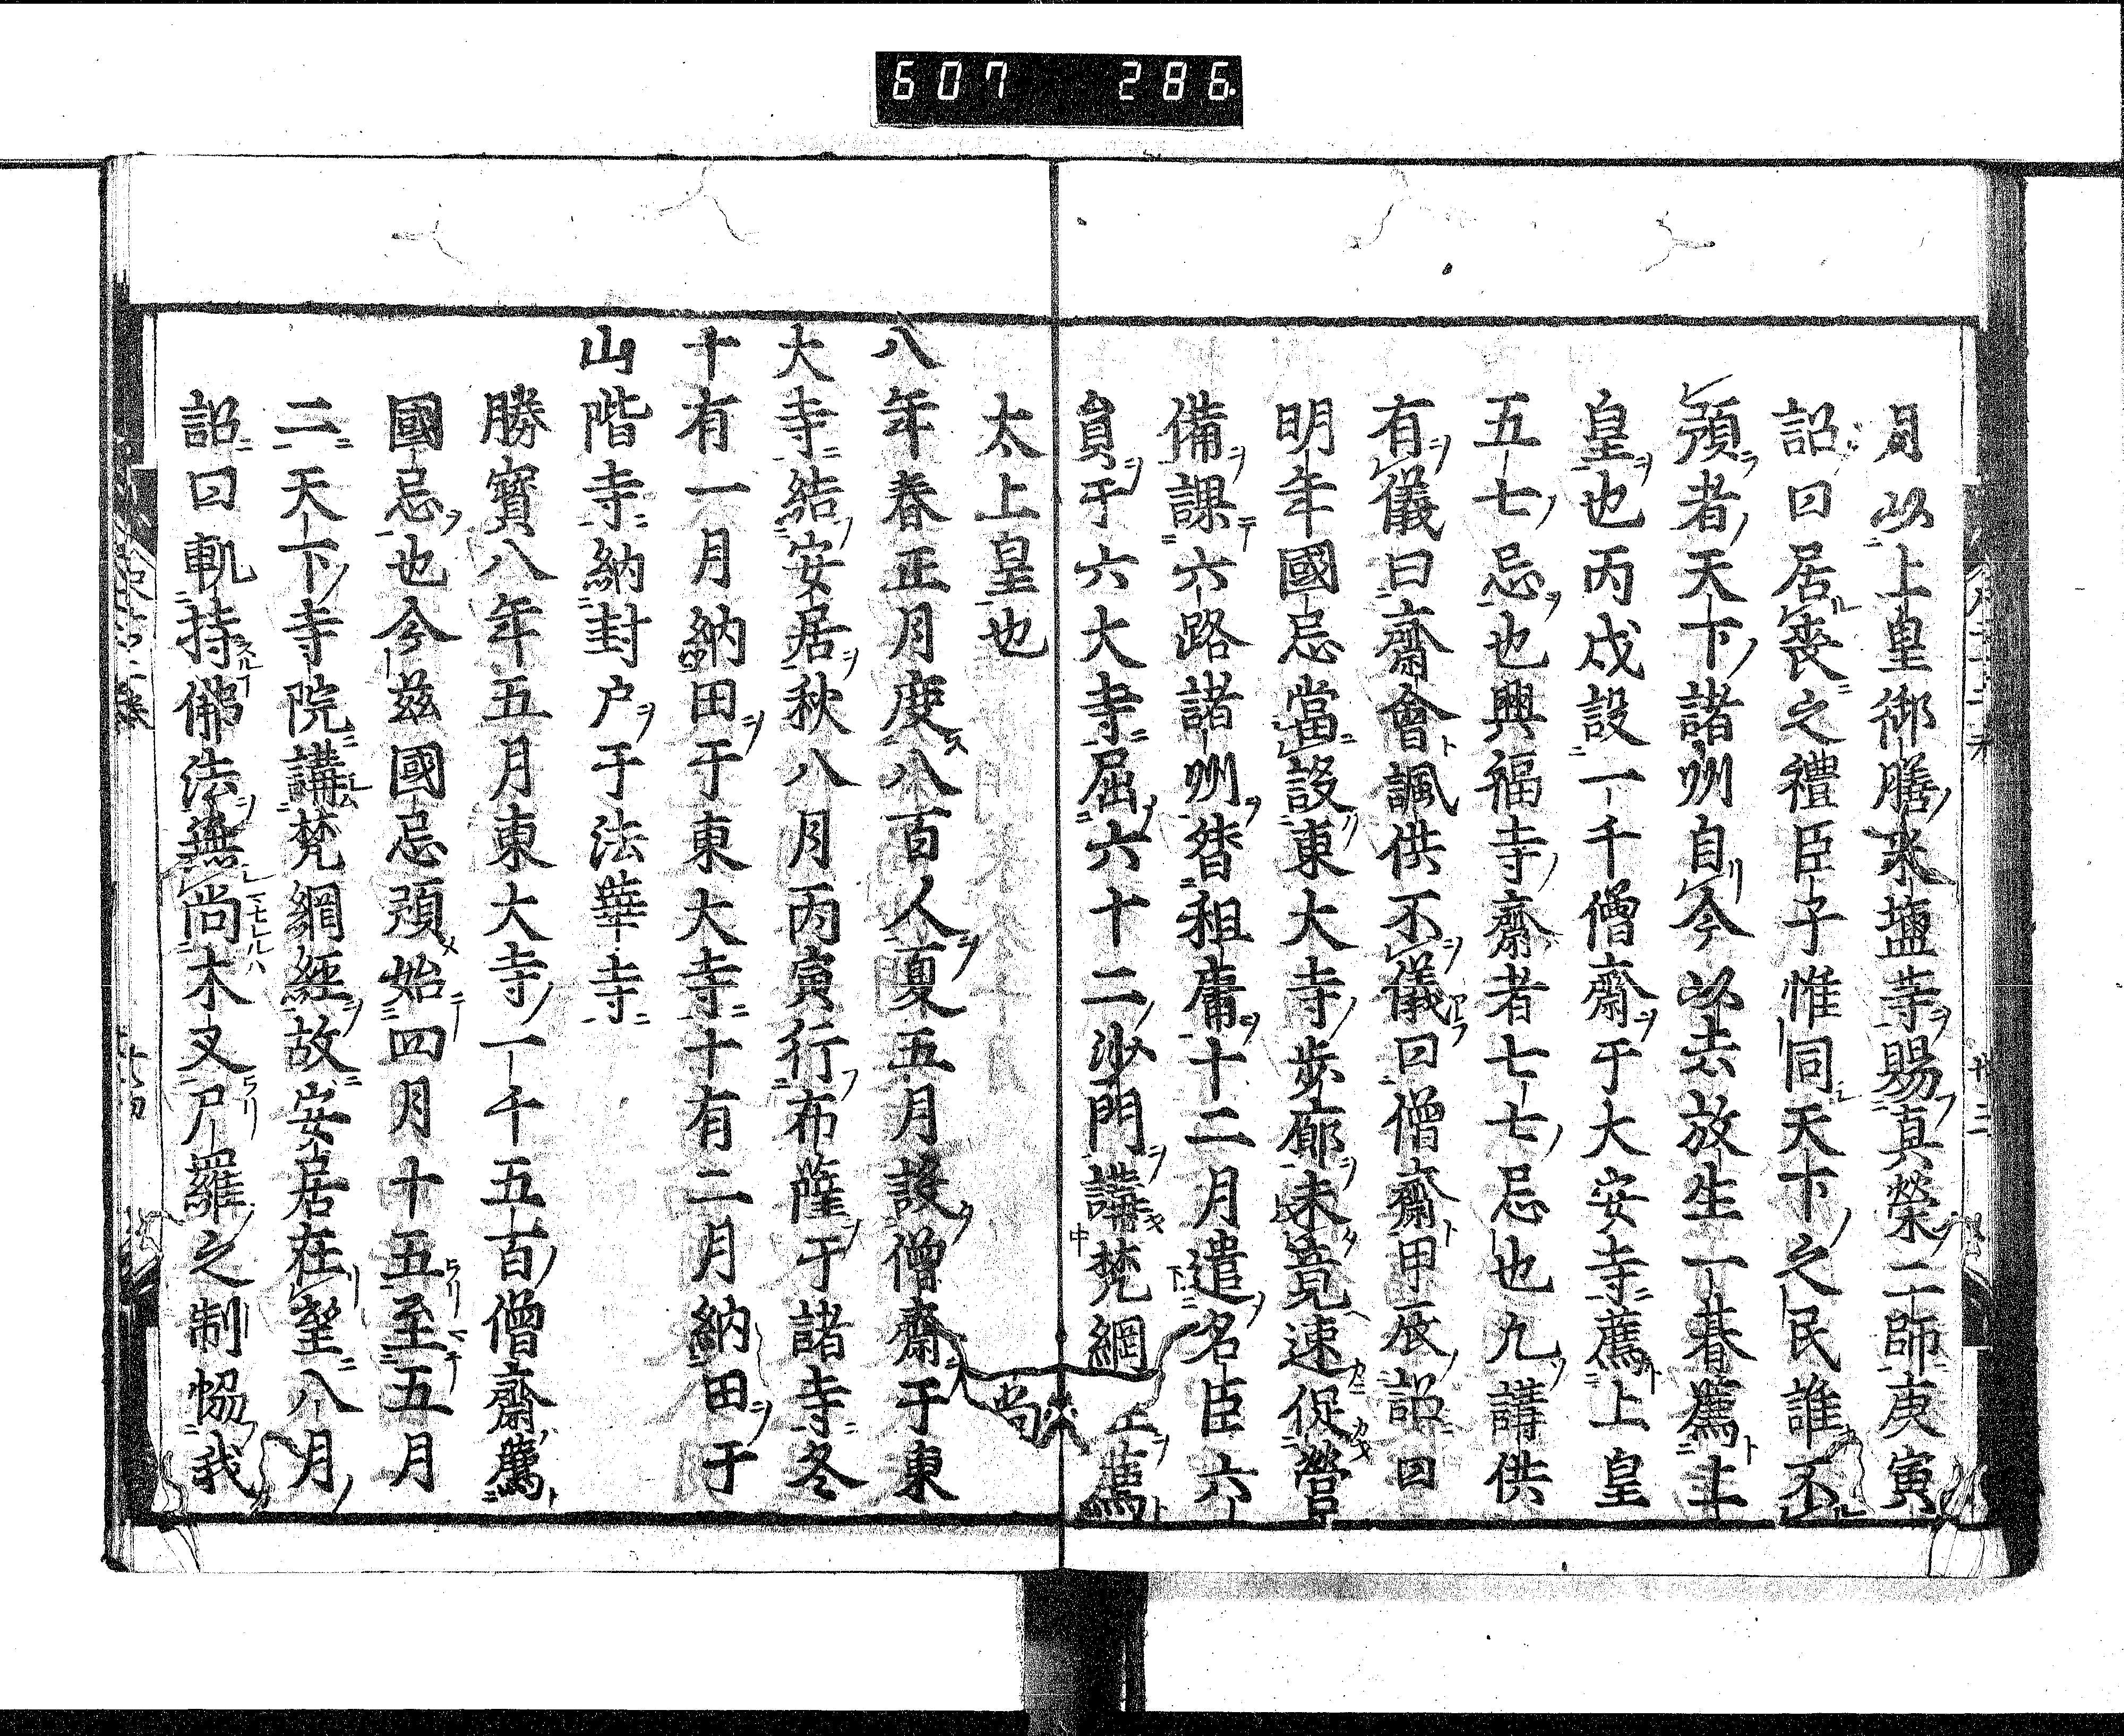 607 286
月以上皇御膳米塩寺賜真榮二師庚寅
詔曰居喪之禮臣子惟同天下之民誰不
須者天下諸州自今以去放生一朞薦上
皇也丙戌設一千僧齋于大安寺薦上皇
五七忌也興福寺齋者七七忌也九講供
有儀曰齋會諷供不儀曰僧齋甲辰詔曰
明年國忌當設東大寺歩廊未竟速促營
備課六路諸州替租庸十二月遣名臣六
員于六大寺屈六十二沙門講梵綱上薦
太上皇也
八年春正月度八百人夏五月設僧齋于東
大寺結安居秋八月丙寅行布薩于諸寺冬
十有一月納田于東大寺十有二月納田于
山階寺納封户于法華寺
勝寶八年五月東大寺一千五百僧齋薦
國忌也今兹國忌須始四月十五至五月
二天下寺院講梵綱經故安居在望八月
詔曰軌持佛法無尚木叉尸羅之制恊我